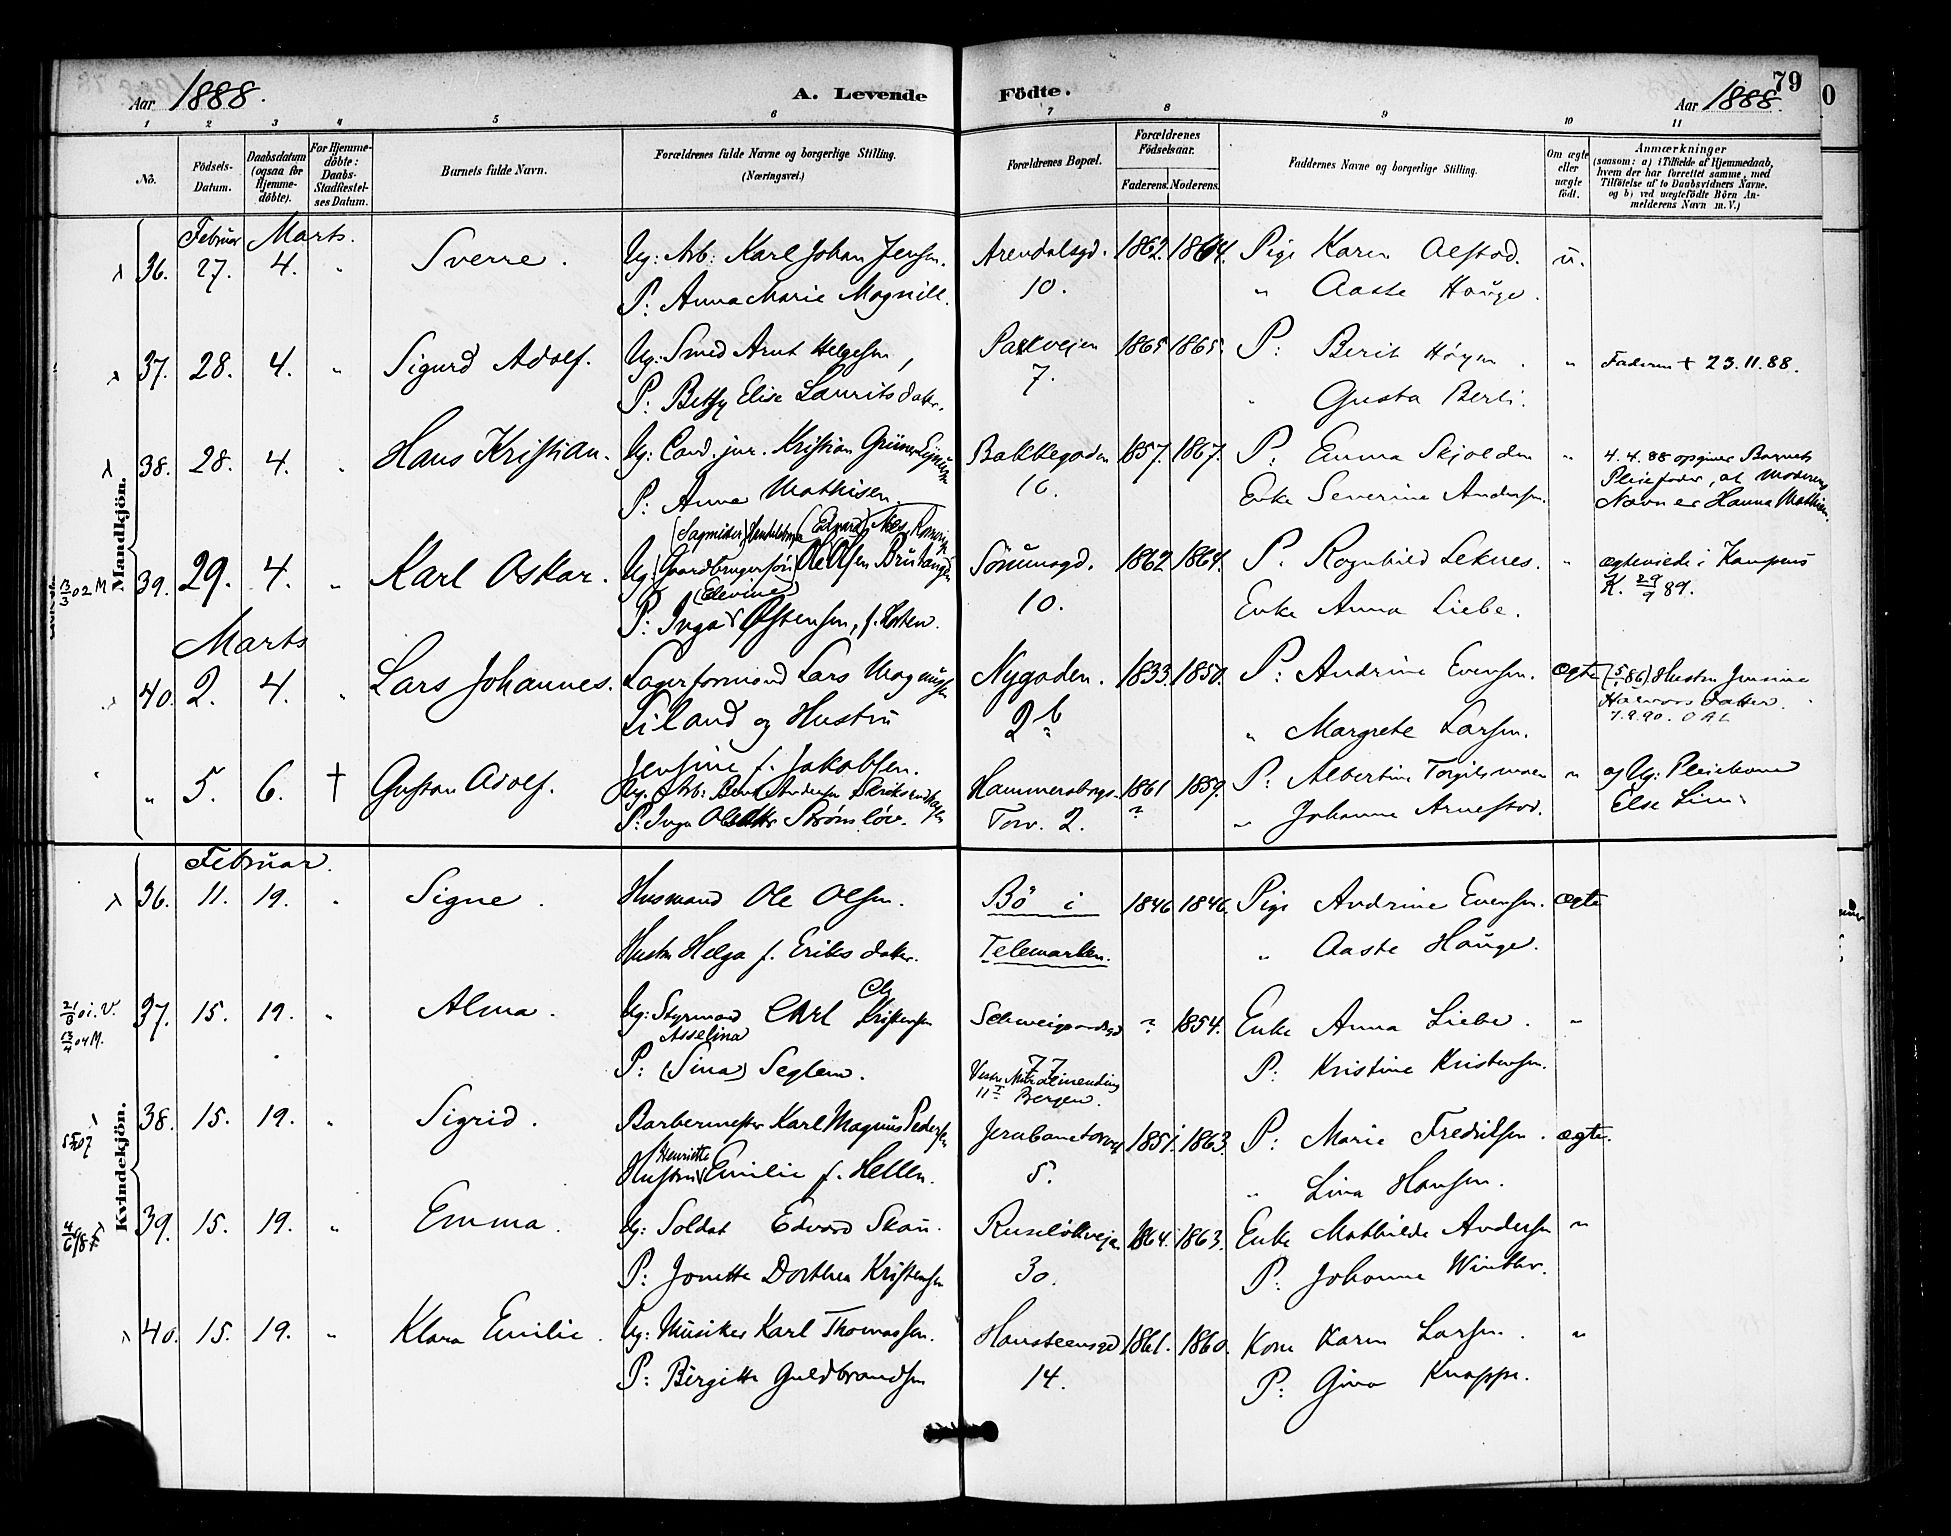 Aar 1888.
A. Levende
Födte.
Aar 1888.
79
1 2 3 4 5 6 7 8 9 10 11
No.
Födsels-Datum.
Daabsdatum (ogsaa for Hjemme-döbte).
For Hjemme-döbte: Daabs-Stadfæstel-ses Datum.
Barnets fulde Navn.
Forældrenes fulde Navne og borgerlige Stilling. (Næringsvei.)
Forældrenes Bopæl.
Forældrenes Födselsaar.
Faderens. Moderens.
Faddernes Navne og borgerlige Stilling.
Om ægte eller uægte födt.
Anmærkninger
(saasom: a) i Tilfælde af Hjemmedaab,
hvem der har forrettet samme, med
Tilföielse af to Daabsvidners Navne.
og b) ved uægtefödte Börn An-
melderens Navn m. V.)
Mandkjön.
Februar Marts.
36. 27. 4. " Sverre. Ug: Arb: Karl Johan Jensen. Arendalsgd. 1862. 1864. Pige Karen Alstad. u.
P: Anna Marie Magnill. 10. " Aaste Hauge.
37. 28. 4. " Sigurd Adolf. Ug: Smed Arnt Helgesen, Parkveien 1865 1865. P: Berit Höyen. " Faderen + 23.11.88.
P: Betsy Elise Lauritsdatter. 7. " Gusta Berli.
38. 28. 4. " Hans Kristian. Ug: Cand. jur. Kristian Grüner Bakkegaden 1857. 1867. P: Emma Skjolden " 4.4.88 opgiver Barnets
P: Anna Mathisen. 16. Enke Severine Andersen. Pleiefader, at Moderens
Navn er Hanna Mathisen.
(Edvard) Næs,
13/3 02 M 39. 29. 4. " Karl Oskar. Ug: (Gaardbrugersön) Ole Olsen Sörumsgd. 1862 1864. P. Ragnhild Leknes. " ægteviede i Kampens
(Elevine)
P: Inga Östensen, 10. Enke Anna Liebe. K. 29/9 89.
Marts
40. 2. 4. " Lars Johannes. Lagerformand Lars Magnussen Nygaden. 1833. 1850. P: Andrine Evensen. ægte Hustru Jensine
Liland og Hustru 2b " Margrete Larsen. Halvorsdatter.
7.9.90.
Jensine f. Jakobsen.
" 5. 6. † Gustav Adolf. Ug. Arb: Bernt Andersen Hammersborgs 1861 1859. P: Albertine " og Ug: Pleiekone
P: Inga Strömslöv. Torv. 2. " Johanne Arnestad. Else Lien
Kvindekjön.
Februar.
36. 11. 19. " Signe. Husmand Ole Olsen. Bö i 1846 1846. Pige Andrine Evensen. ægte
Hustru Helga f. Eriksdatter. Telemarken. " Aaste Hauge.
37. 15. 19. " Alma. Ug: Styrmand Carl Chr Kristensen Schweigaardsgd " 1854. Enke Anna Liebe. "
Asselina
P: (Sina) Seglem. 77 P: Kristine Kristensen.
Bergen.
38. 15. 19. " Sigrid. Barbermester Karl Magnus Pedersen Jernbanetorvet 1851. 1863. P: Marie Fredriksen. ægte.
Henriette
Hustru Emilie f. Hellen. 5. " Lina Hansen.
39. 15. 19. " Emma. Ug: Soldat Edvard Skau. Ruselökveien 1864. 1863. Enke Mathilde Andersen "
P: Jonette Dorthea Kristensen 30. P: Johanne Winther.
40. 15. 19. " Klara Emilie. Ug: Musiker Karl Thomassen. Hansteensgd 1861. 1860. Kone Karen Larsen. "
P: Birgitte Guldbrandsen 14. P: Gina Knappe.